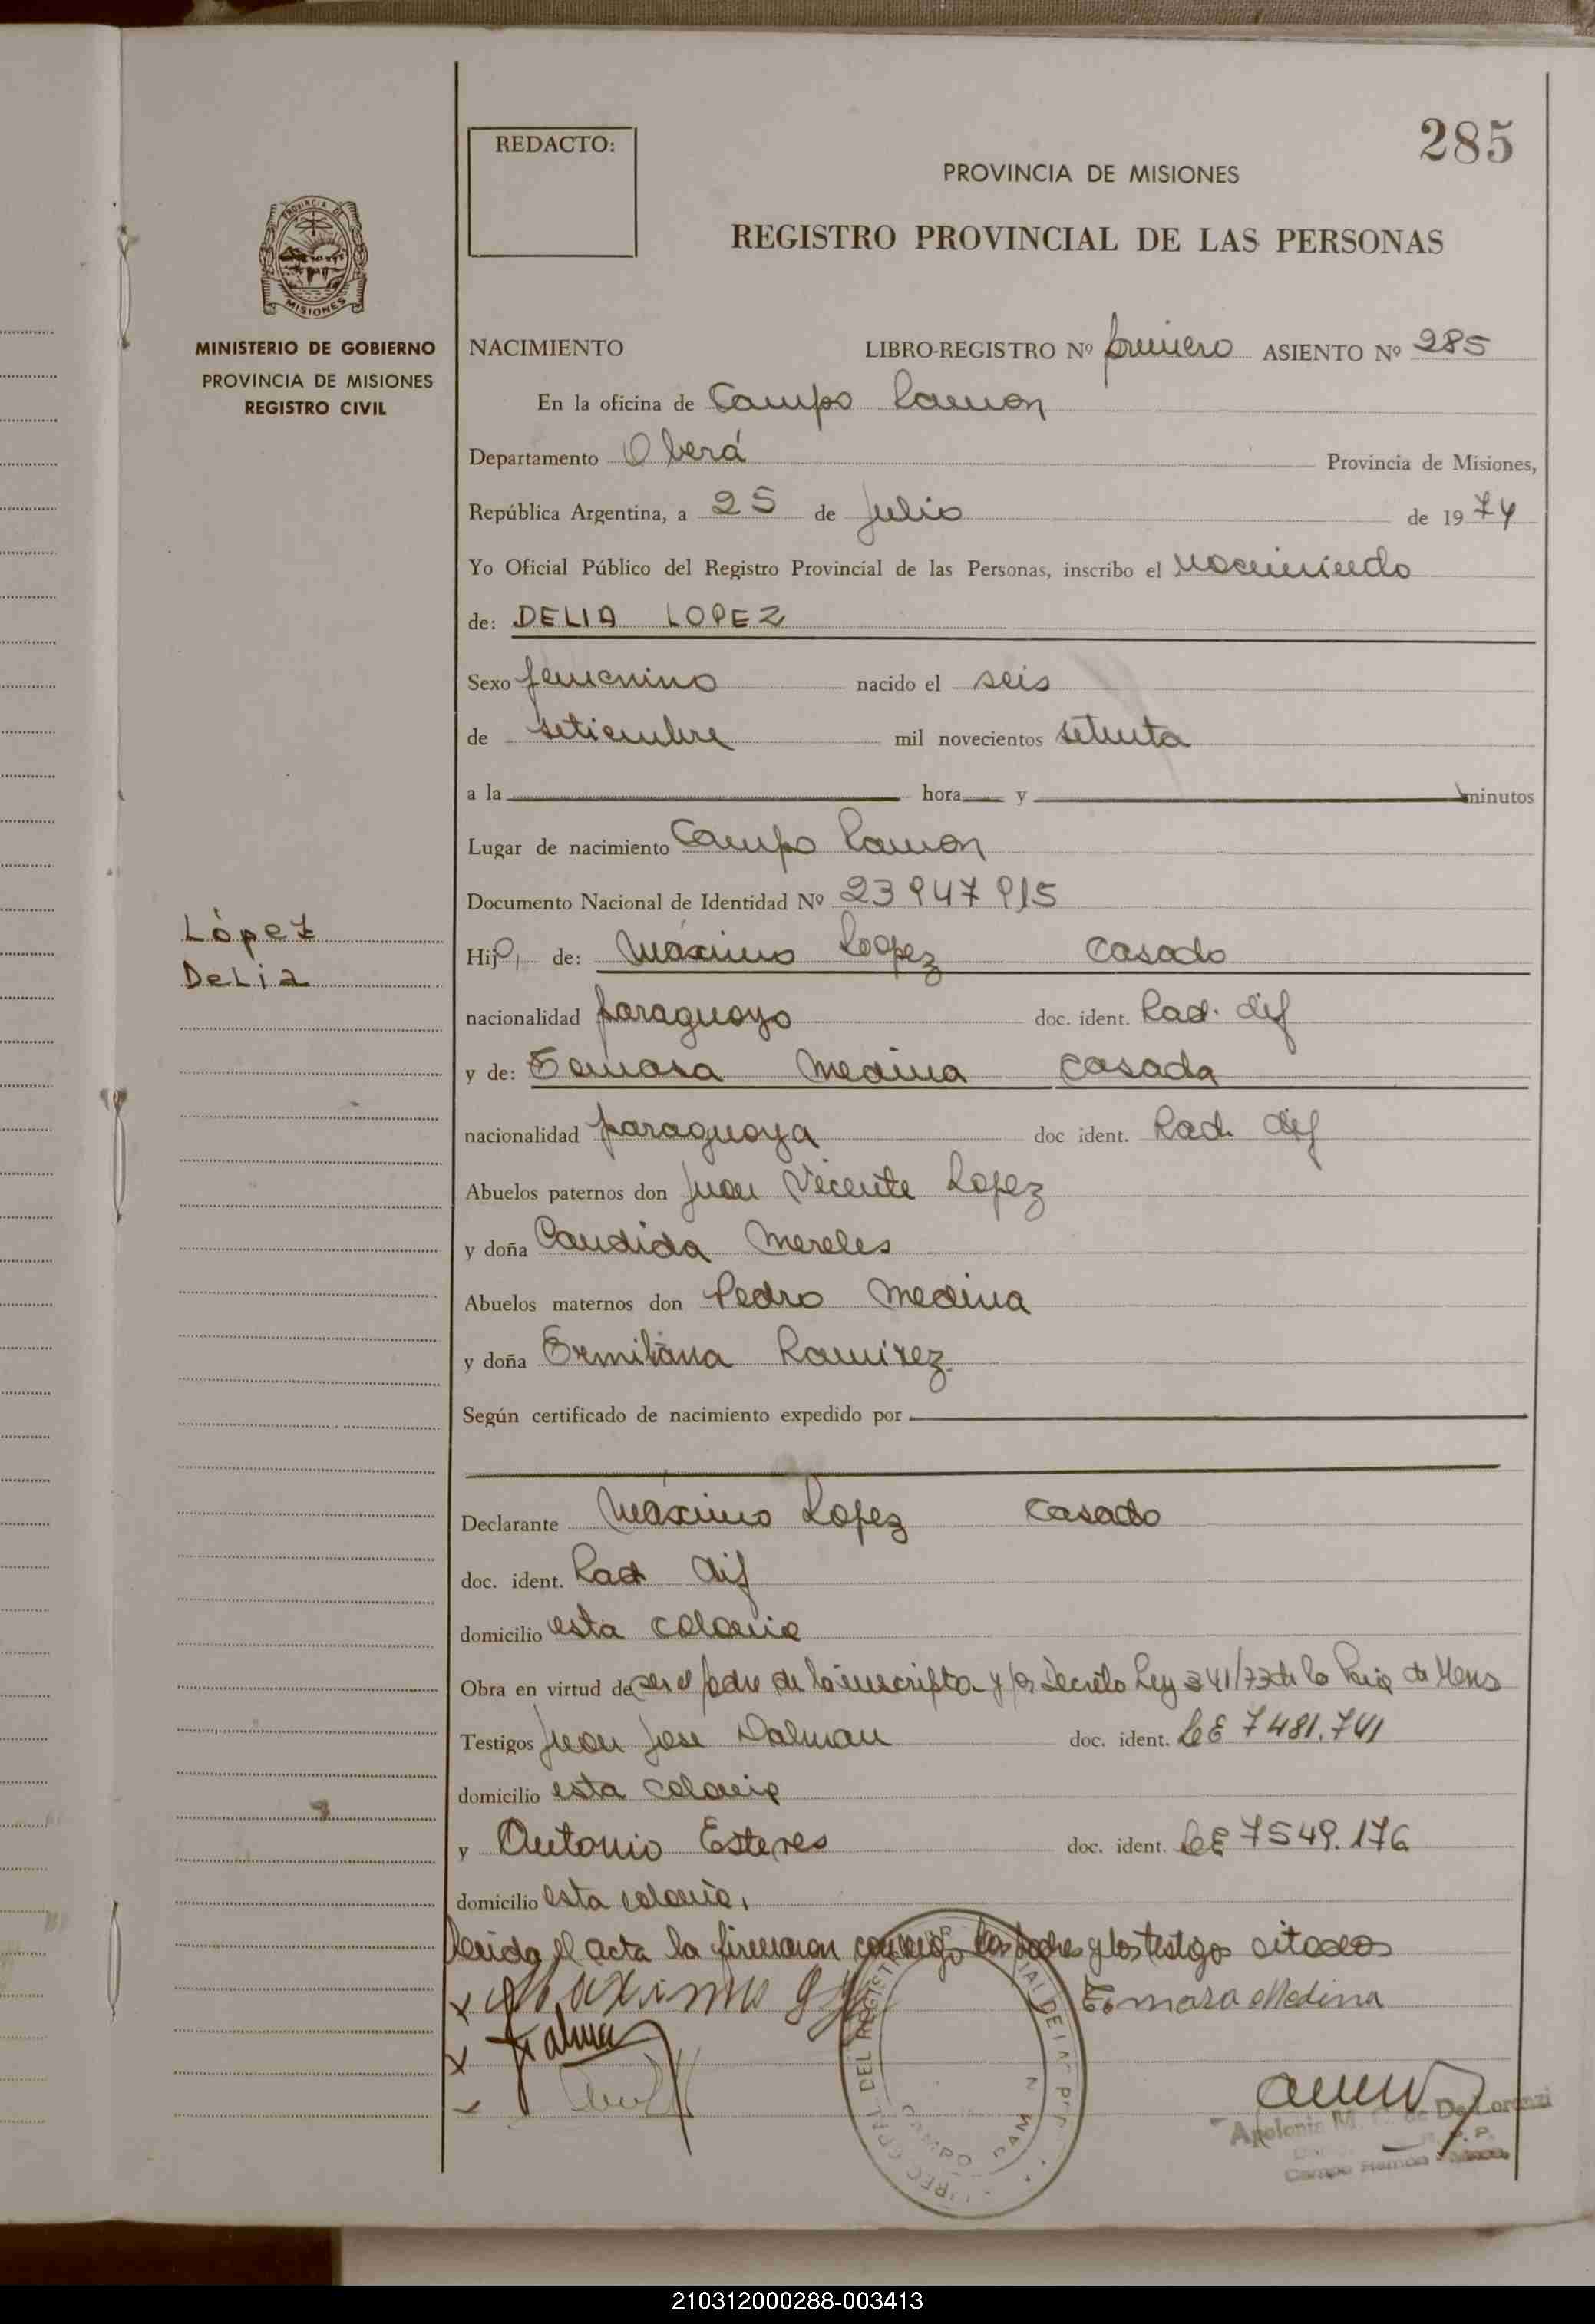 285
REDACTO:
PROVINCIA DE MISIONES
REGISTRO PROVINCIAL DE LAS PERSONAS
PROVINCIA DE
MISIONES
MINISTERIO DE GOBIERNO
PROVINCIA DE MISIONES
REGISTRO CIVIL
López
Delia
NACIMIENTO LIBRO-REGISTRO Nº primero ASIENTO Nº 285
En la oficina de Campo Ramon
Departamento Oberá Provincia de Misiones,
República Argentina, a 25 de Julio de 1974
Yo Oficial Público del Registro Provincial de las Personas, inscribo el nacimiento
de: DELIA LOPEZ
Sexo femenino nacido el seis
de setiembre mil novecientos setenta
a la hora y minutos
Lugar de nacimiento Campo Ramon
Documento Nacional de Identidad Nº 23947915
Hija de: Máximo Lopez Casado
nacionalidad paraguayo doc. ident. Rad. dif
y de: Tomasa Medina Casada
nacionalidad paraguaya doc ident. Rad. dif
Abuelos paternos don Juan Vicente Lopez
y doña Candida Mereles
Abuelos maternos don Pedro Medina
y doña Ermiliana Ramirez
Según certificado de nacimiento expedido por
Declarante Máximo Lopez Casado
doc. ident. Rad dif
domicilio esta colonia
Obra en virtud de ser el padre de la inscripta y p/ Decreto Ley 341/73 de la Pcia de Mnes
Testigos Juan Jose Dalmau doc. ident. LE 7481.741
domicilio esta colonia
y Antonio Esteves doc. ident. LE 7549.176
domicilio esta colonia,
Leida el acta la firmaron conmigo los padres y los testigos citados
x Maximo Tomasa Medina
x
Apolonia M. de De Lorenzi
Campo Ramón
DEL REGISTRO
CAMPO RAMON
210312000288-003413